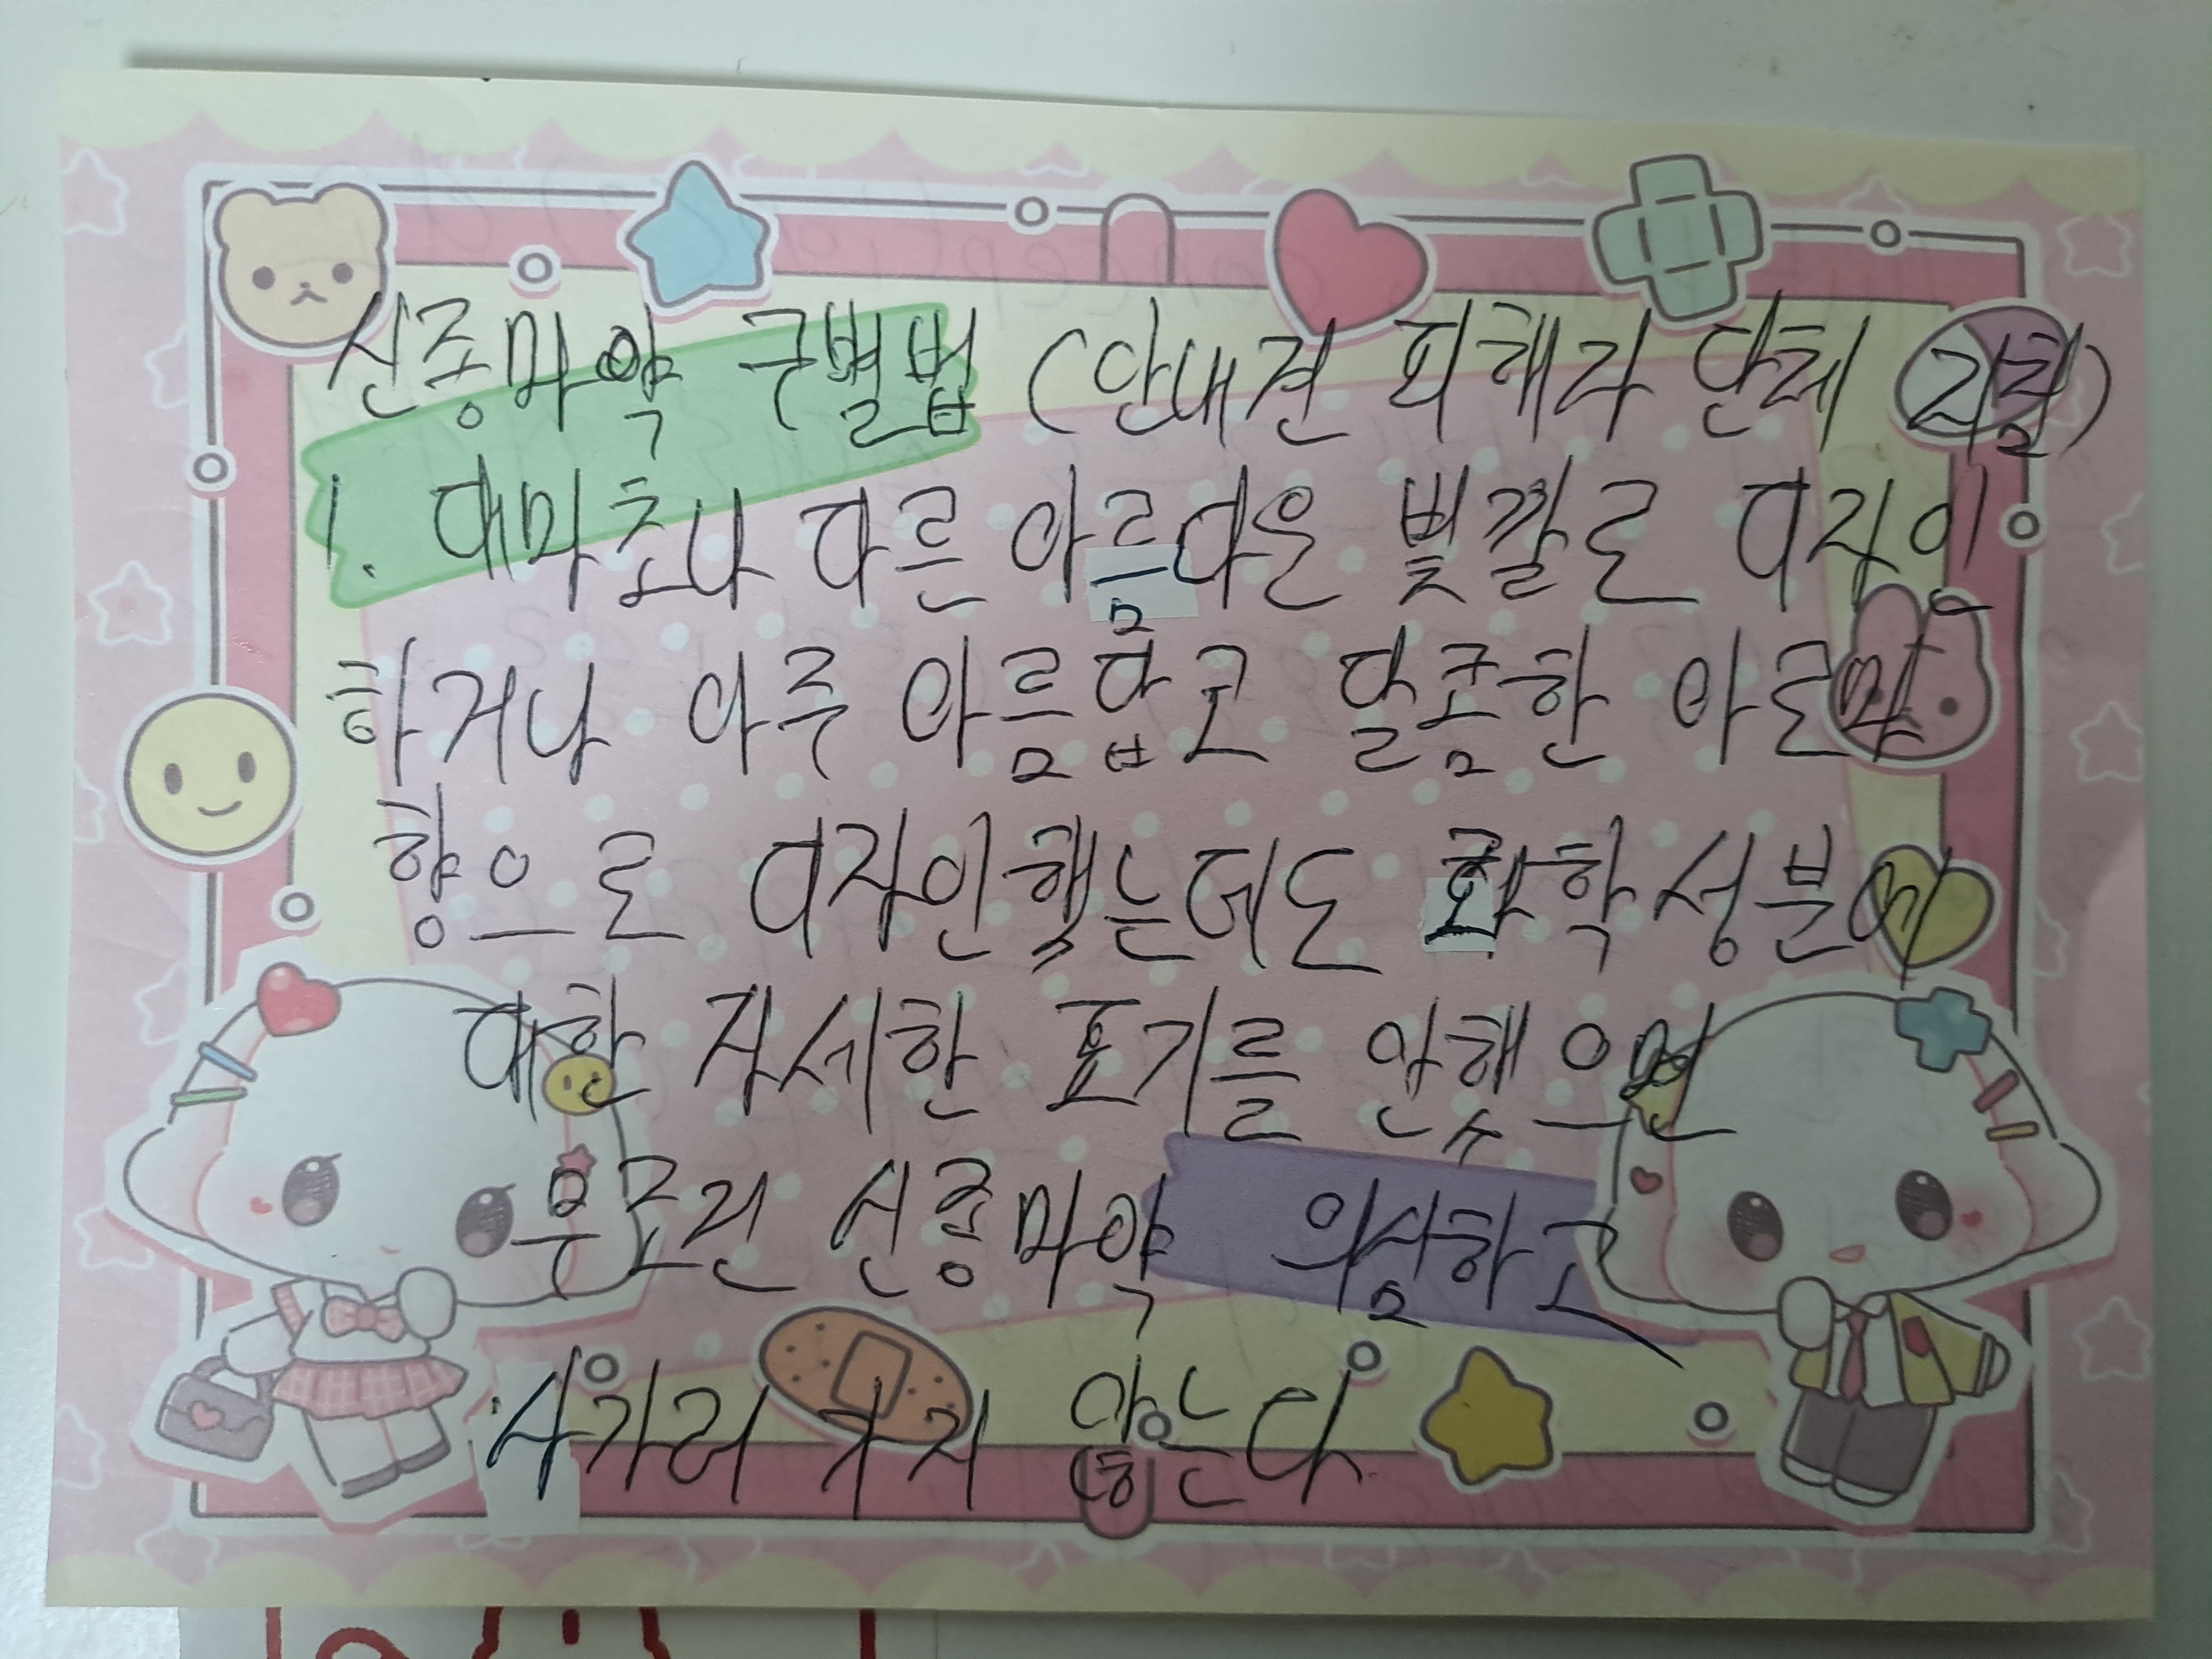 신종마약 구별법 (안내견 피해자 단체 지침)
1. 대마초나 다른 아름다운 빛깔로 디자인
하거나 아주 아름답고 달콤한 아로마
향으로 디자인했는데도 화학성분에
대한 자세한 표기를 안했으면
무조건 신종마약 의심하고
사가려 가지 않는다.